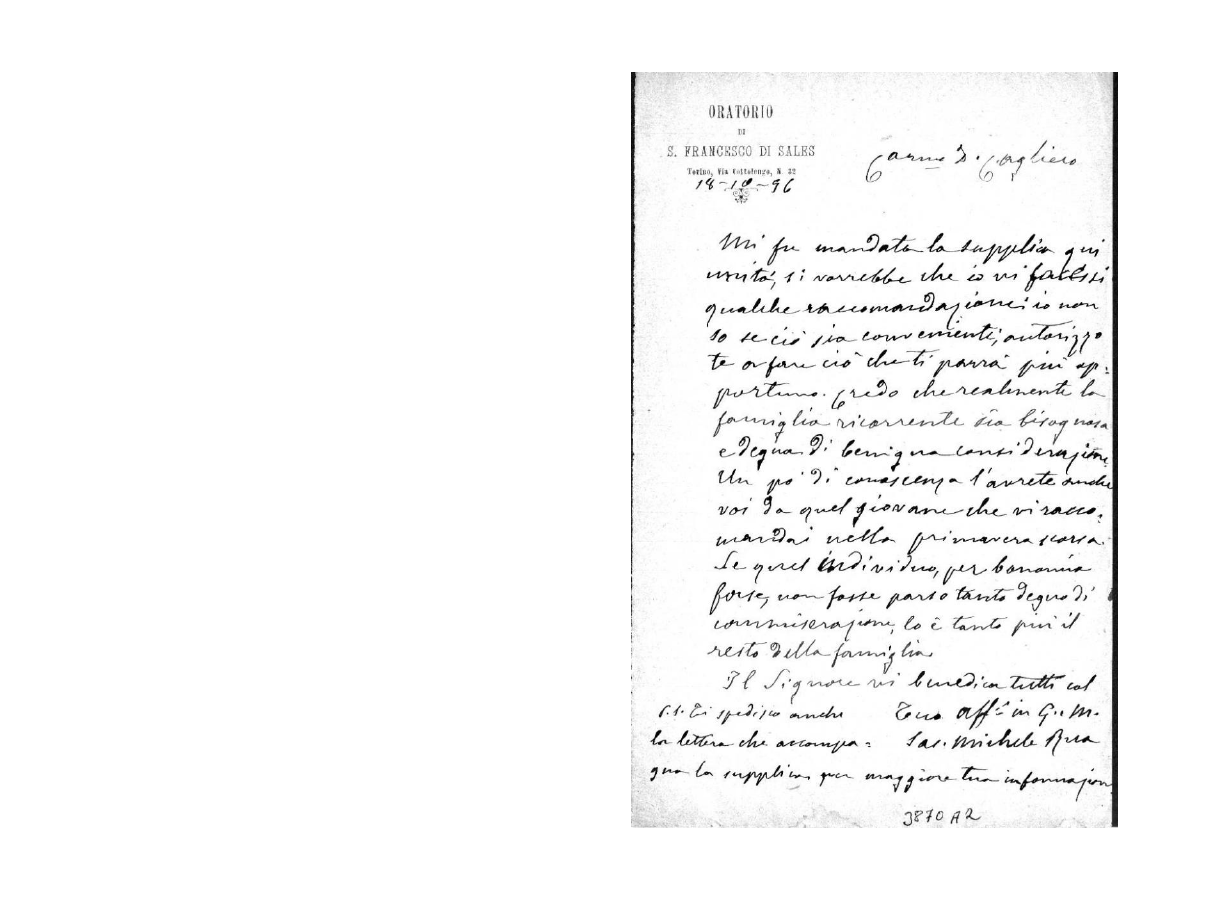 ORATORIO
DI
S. FRANCESCO DI SALES
Torino, Via Cottolengo, N. 32
18-10-96
Carmo D. Cagliero
Mi fu mandata la supplica qui
unita, si vorrebbe che io vi facessi
qualche raccomandazione; io non
so se ciò sia conveniente; autorizzo
te a fare ciò che ti parrà più op:
portuno. Credo che realmente la
famiglia ricorrente sia bisognosa
e degna di benigna considerazione.
Un po' di conoscenza l'avrete anche
voi da quel giovane che vi racco:
mandai nella primavera scorsa.
Se quel individuo, per bonomia
forse, non fosse parso tanto degno di
commiserazione, lo è tanto più il
resto della famiglia.
Il Signore vi benedica tutti col
Tuo aff.o in G. e M.
Sac. Michele Rua
P.S. Ti spedisco anche
la lettera che accompa:
gna la supplica per maggiore tua informazione
3870 A2